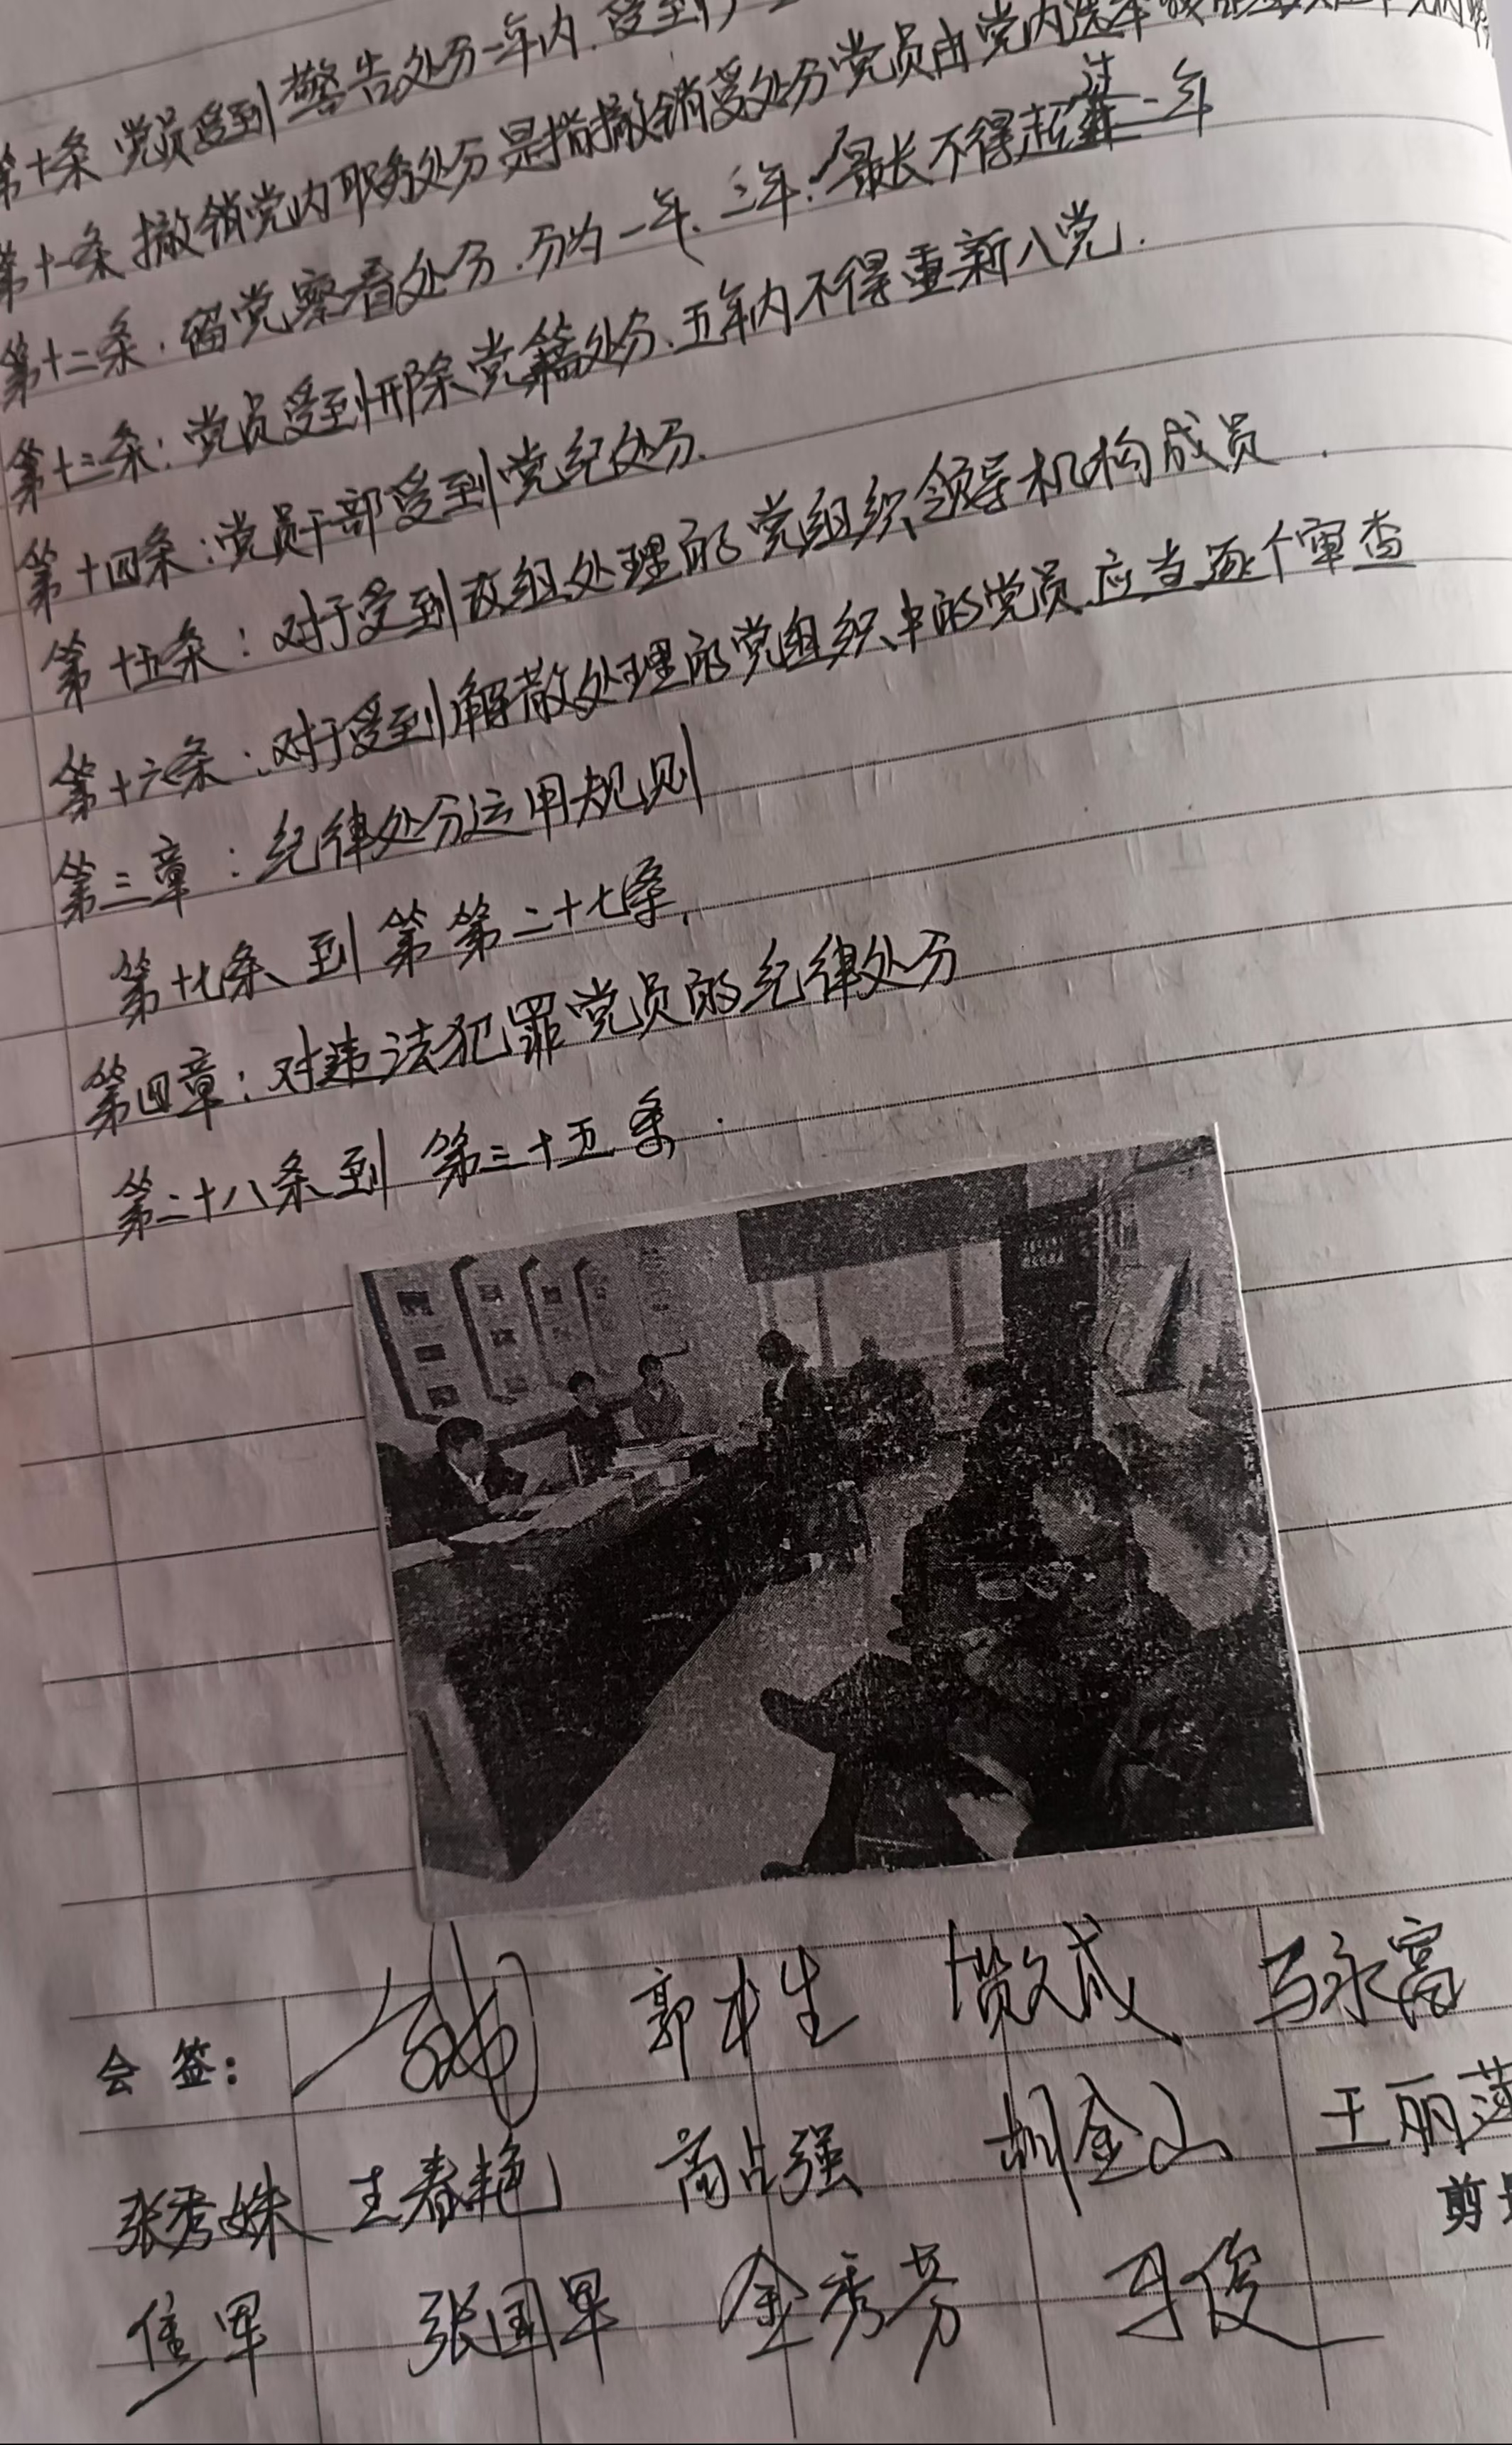 第十条 党员受到警告处分一年内、受到
第十一条 撤销党内职务处分是指撤销受处分党员由党内选举
第十二条.留党察看处分.分为一年、二年.最长不得超过二年
第十三条:党员受到开除党籍处分、五年内不得重新入党.
第十四条:党员干部受到党纪处分.
第十五条:对于受到改组处理的党组织领导机构成员.
第十六条:对于受到解散处理的党组织中的党员应当逐个审查
第三章:纪律处分运用规则
第十七条到第第二十七条.
第四章:对违法犯罪党员的纪律处分
第二十八条到第三十五条.
会 签: 郭术生 马永富
张秀姝 王春艳 高占强 金山 王丽萍
剪
军 张国军 金秀芳 马俊